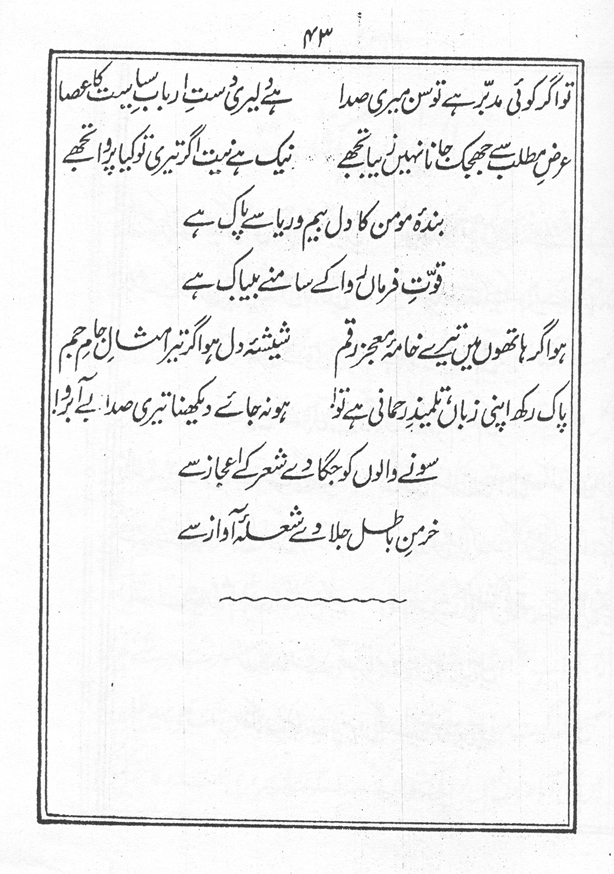 ۴۳
تو اگر کوئی مدبّر ہے تو سن میری صدا ہے دلیری دستِ اربابِ سیاست کا عصا
عرضِ مطلب سے جھجک جانا نہیں زیبا تجھے نیک ہے نیت اگر تیری تو کیا پروا تجھے
بندۂ مومن کا دل بیم و ریا سے پاک ہے
قوّتِ فرماں روا کے سامنے بیباک ہے
ہو اگر ہاتھوں میں تیرے خامۂ معجز رقم شیشۂ دل ہو اگر تیرا مثالِ جامِ جم
پاک رکھ اپنی زباں، تلمیذِ رحمانی ہے تو! ہو نہ جائے دیکھنا تیری صدا بے آبرو!
سونے والوں کو جگا دے شعر کے اعجاز سے
خرمنِ باطل جلا دے شعلۂ آواز سے